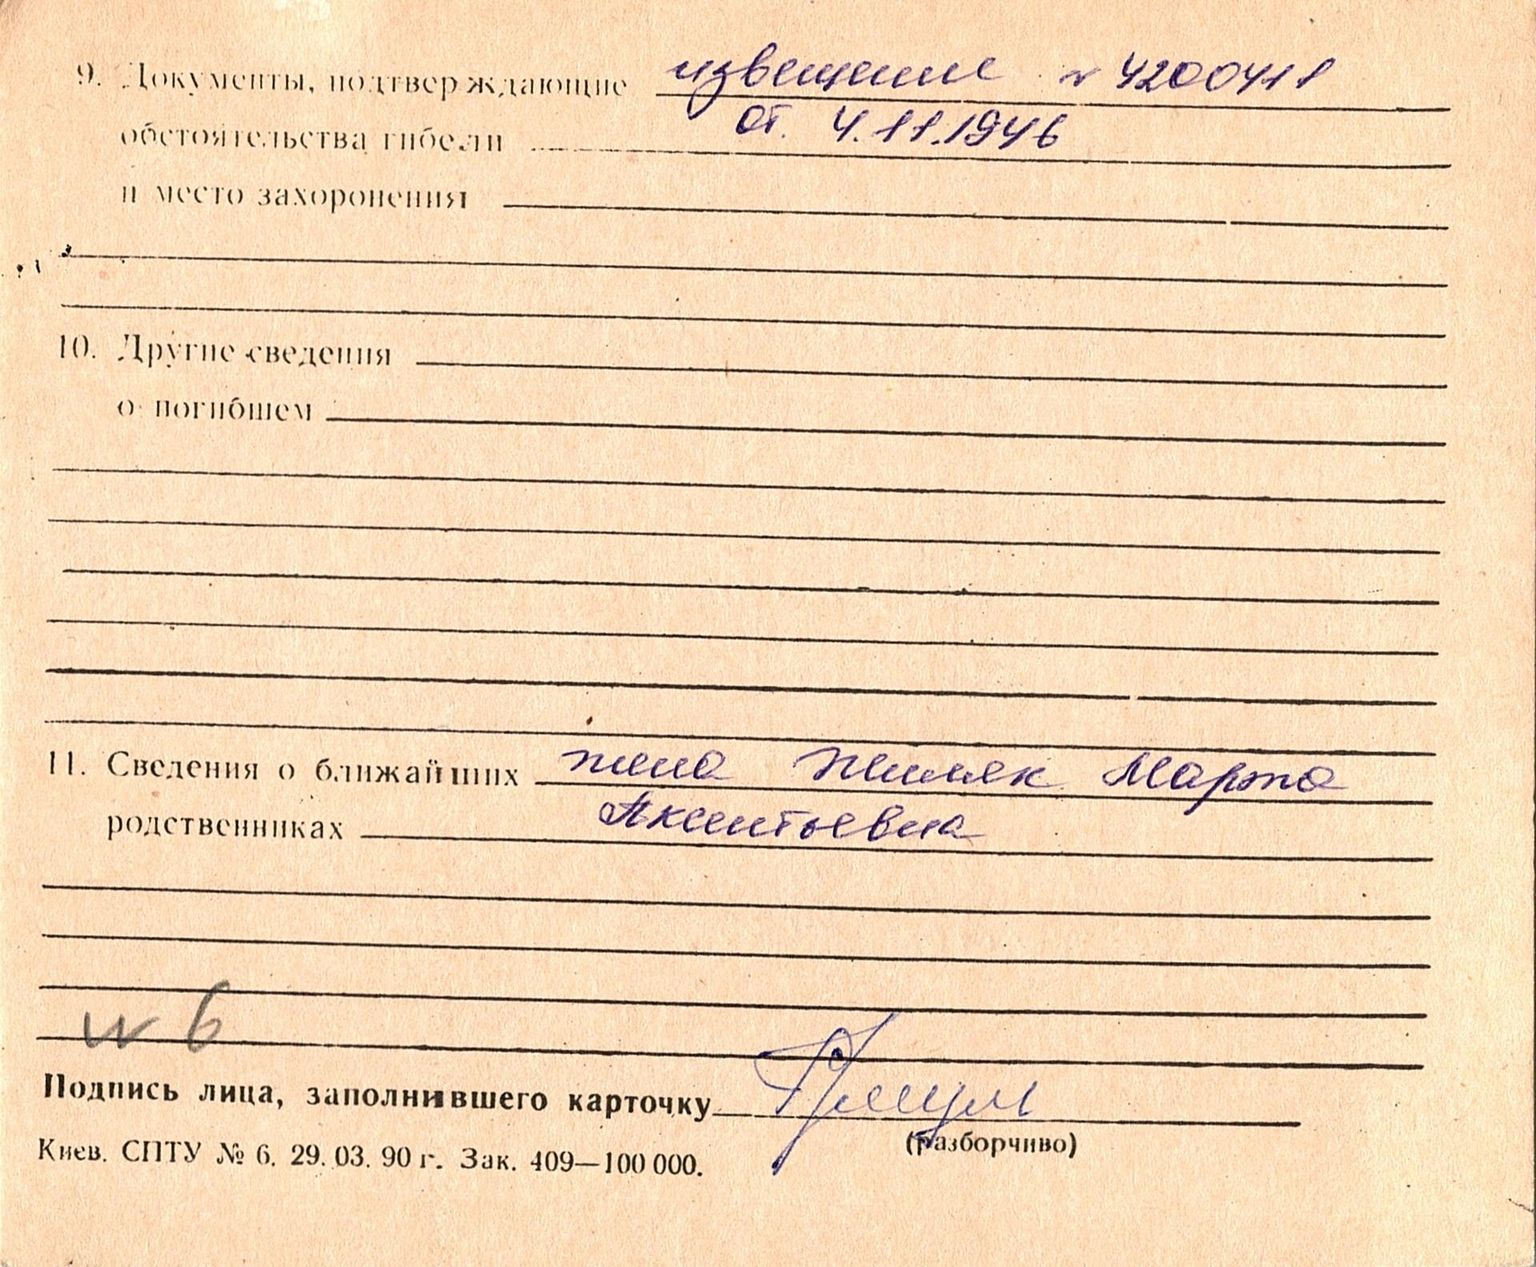 9. Документы, подтверждающие извещение № 4200411
обстоятельства гибели от. 4.11.1946
и место захоронения
10. Другие сведения
о погибшем
11. Сведения о ближайших жена Марта
родственниках Аксентьевна
№ 6
Подпись лица, заполнившего карточку
(разборчиво)
Киев. СПТУ № 6. 29. 03. 90 г. Зак. 409—100 000.